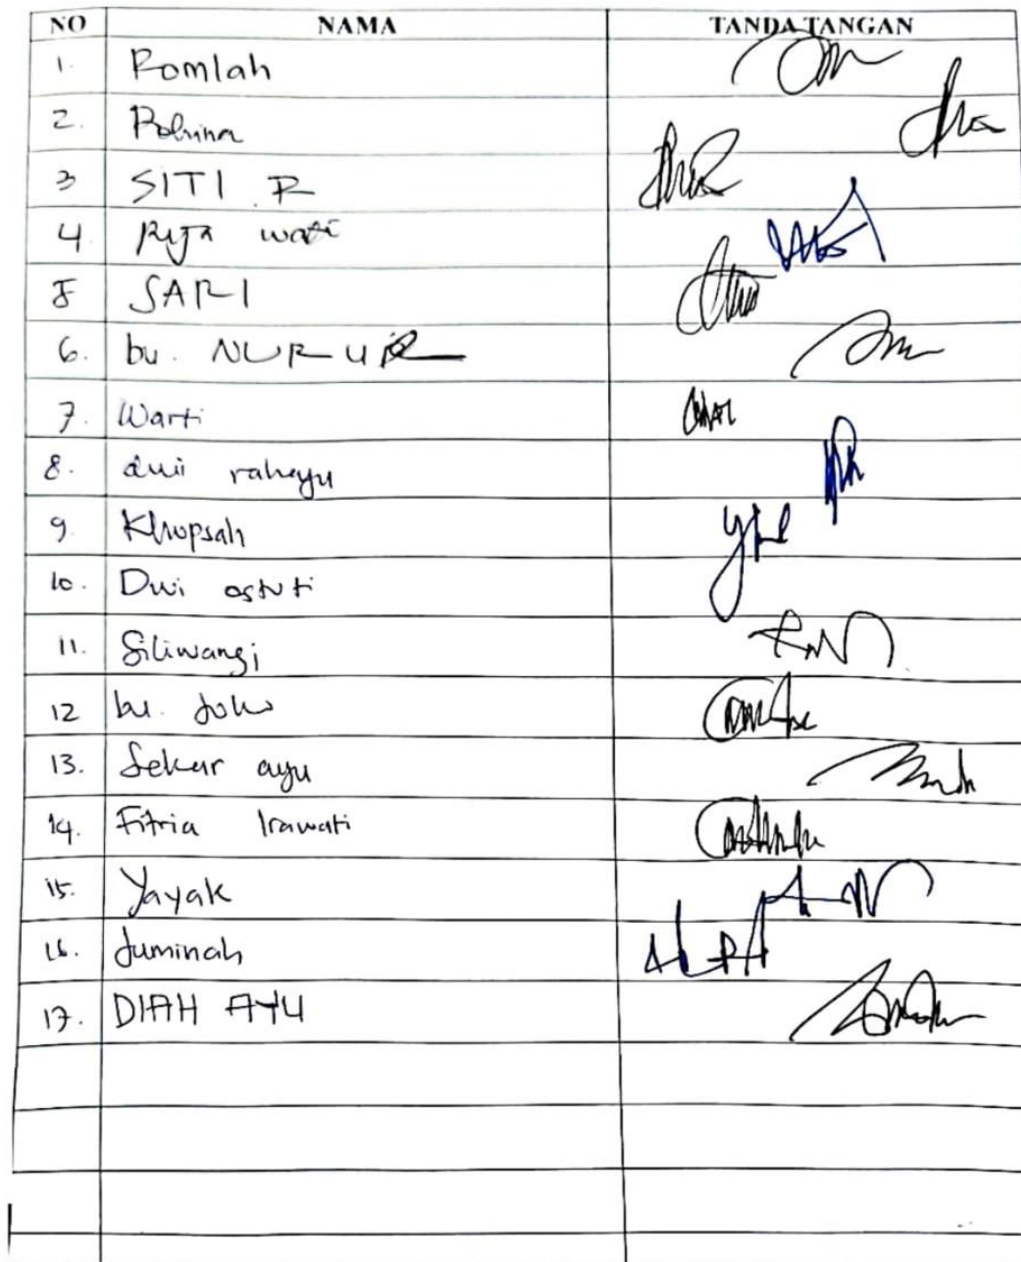 NO NAMA TANDA TANGAN
1. Romlah
2.
3 SITI . R
4 wati
5 SARI
6. bu. NUR
7. Warti
8. dwi rahayu
9. Khopsah
10. Dwi astuti
11. Siliwangi
12 bu. Joko
13. Sekar ayu
14. Fitria Irawati
15. Yayak
16. Juminah
17. DIAH AYU